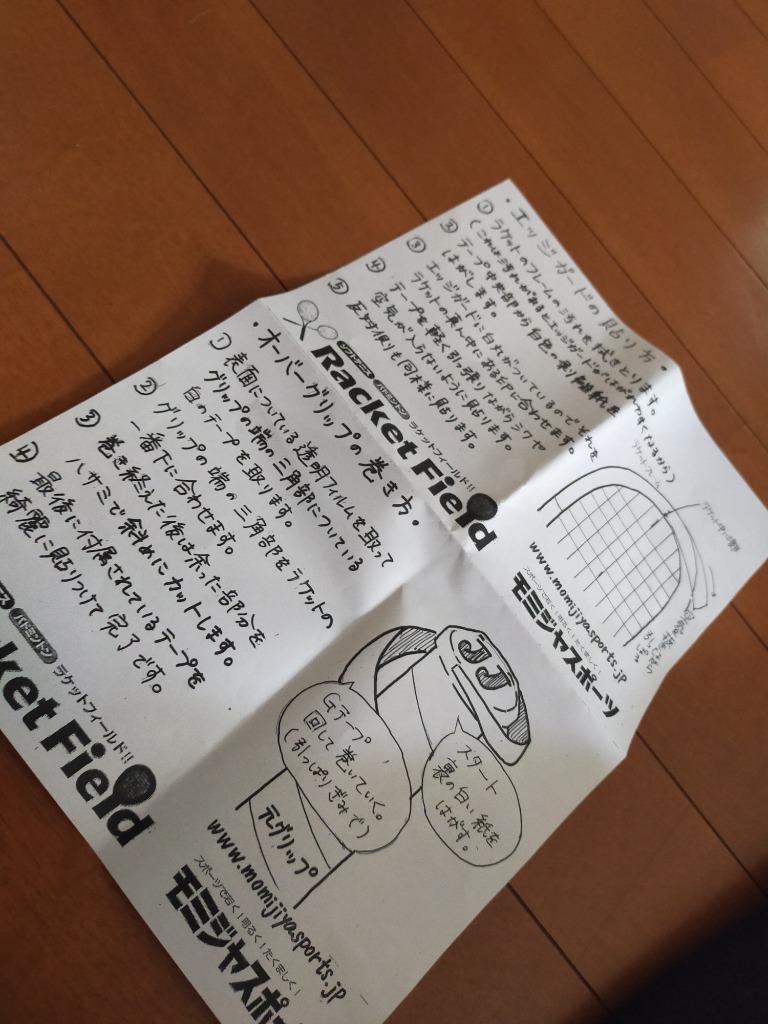 ・エッジガードの貼り方・
① ラケットのフレームの汚れを拭きとります。
(これは汚れがあるとエッジガードがはがれやすくなるから)
② テープ中央部から白色の
はがします。
③ エッジガードに白丸がついているのでそれを
ラケットの真ん中にある印に合わせます。
④ テープを軽く引っ張りながらシワや
空気が入らないように貼ります。
⑤ 反対側も同様に貼ります。
ラケットフレーム
ソフトテニス バドミントン ラケットフィールド!!
Racket Field
www.momijiyasports.jp
スポーツで若く!明るく!たくましく!
モミジヤスポーツ
・オーバーグリップの巻き方・
① 表面についている透明フィルムを取って
グリップの端の三角部についている
白のテープを取ります。
② グリップの端の三角部をラケットの
一番下に合わせます。
③ 巻き終えた後は余った部分を
ハサミで斜めにカットします。
④ 最後に付属されているテープを
綺麗に貼りつけて完了です。
JJ
Gテープ
回して巻いていく。
(引っぱりぎみで)
スタート
裏の白い紙を
はがす。
元グリップ
バドミントン ラケットフィールド!!
ket Field
www.momijiyasports.jp
スポーツで若く!明るく!たくましく!
モミジヤスポー